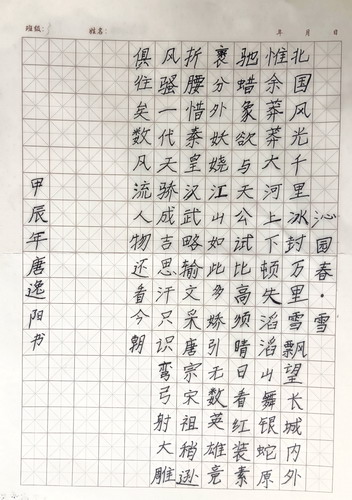 班级: 姓名: 年 月 日
沁园春·雪
北国风光千里冰封万里雪飘望长城内外
惟余莽莽大河上下顿失滔滔山舞银蛇原
驰蜡象欲与天公试比高须晴日看红装素
裹分外妖娆江山如此多娇引无数英雄竞
折腰惜秦皇汉武略输文采唐宗宋祖稍逊
风骚一代天骄成吉思汗只识弯弓射大雕
俱往矣数风流人物还看今朝
甲辰年唐逸阳书